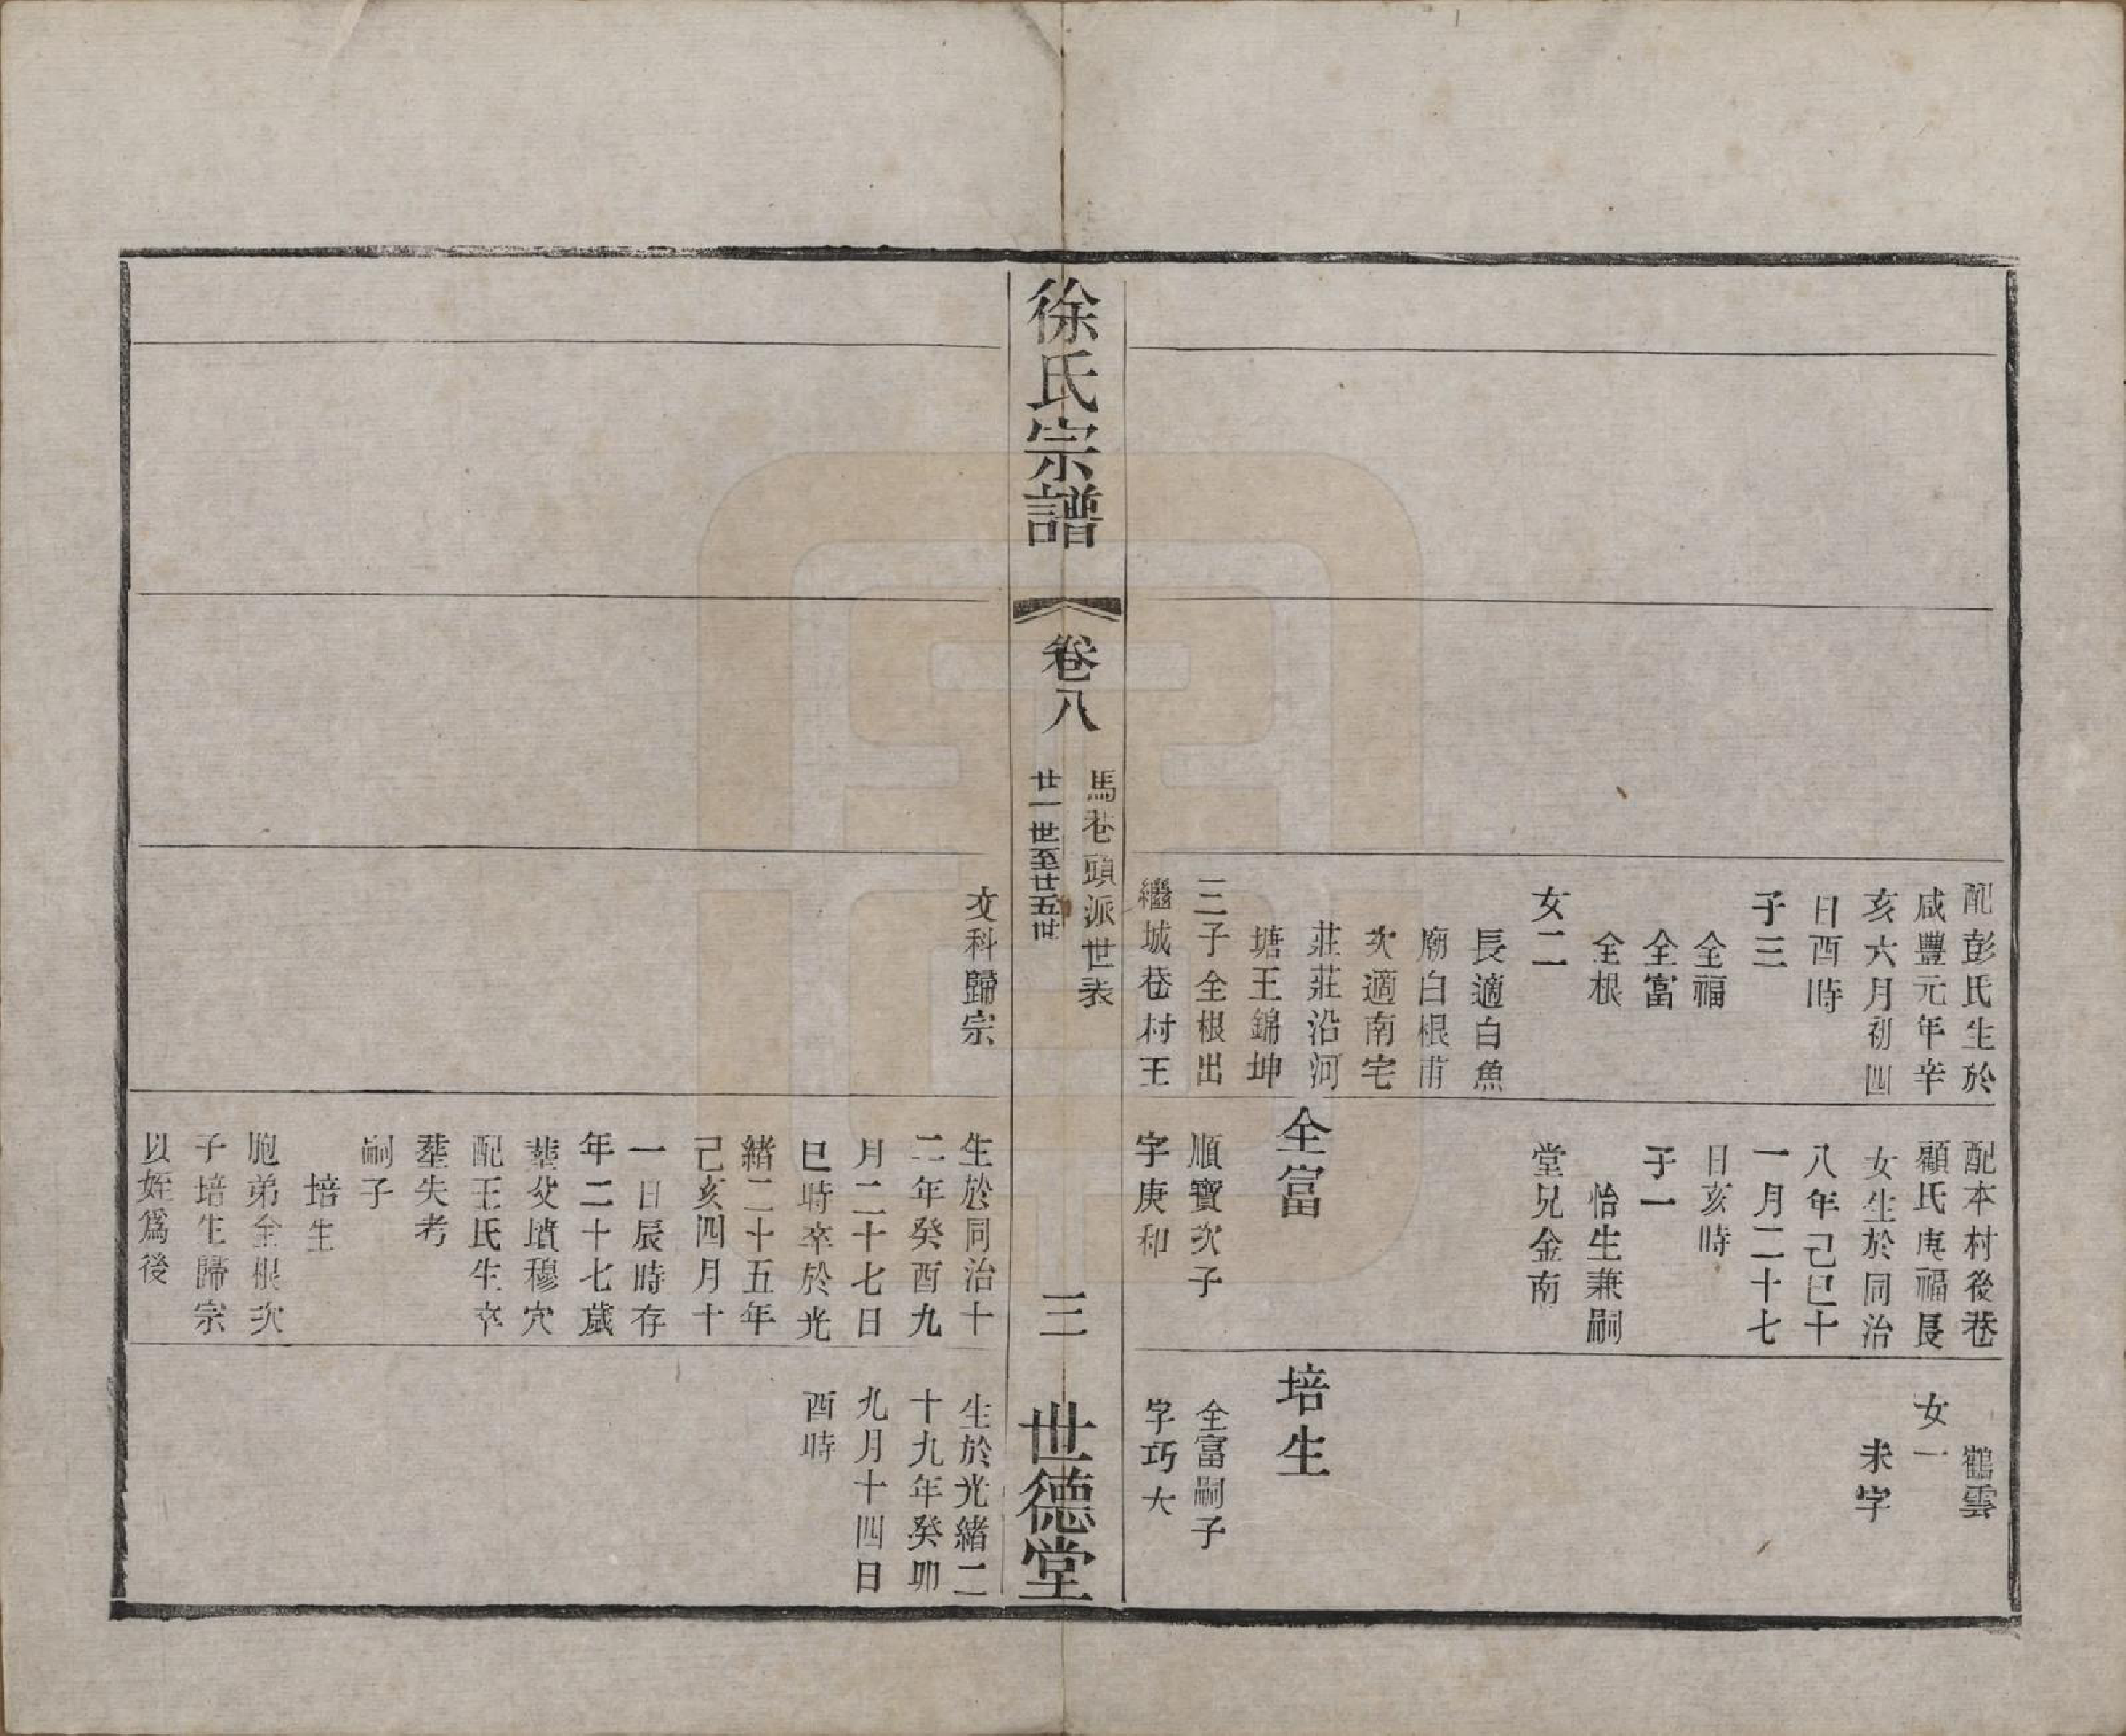 配彭氏生於
咸豐元年辛
亥六月初四
日酉時
子三
全福
全富
全根
女二
長適白魚
廟白根甫
次適南宅
莊莊沿河
塘王錦坤
三子全根出
繼城巷村王
配本村後巷
顧氏庚福長
女生於同治
八年己巳十
一月二十七
日亥時
子一
怡生兼嗣
堂兄金南
全富
順寶次子
字庚和
鶴雲
女一
未字
培生
全富嗣子
字巧大
徐氏宗譜
卷八
馬巷頭派世表
廿一世至廿五世
三
世德堂
文科歸宗
生於同治十
二年癸酉九
月二十七日
巳時卒於光
緒二十五年
己亥四月十
一日辰時存
年二十七歲
塟父墳穆穴
配王氏生卒
塟失考
嗣子
培生
胞弟全根次
子培生歸宗
以姪爲後
生於光緒二
十九年癸卯
九月十四日
酉時